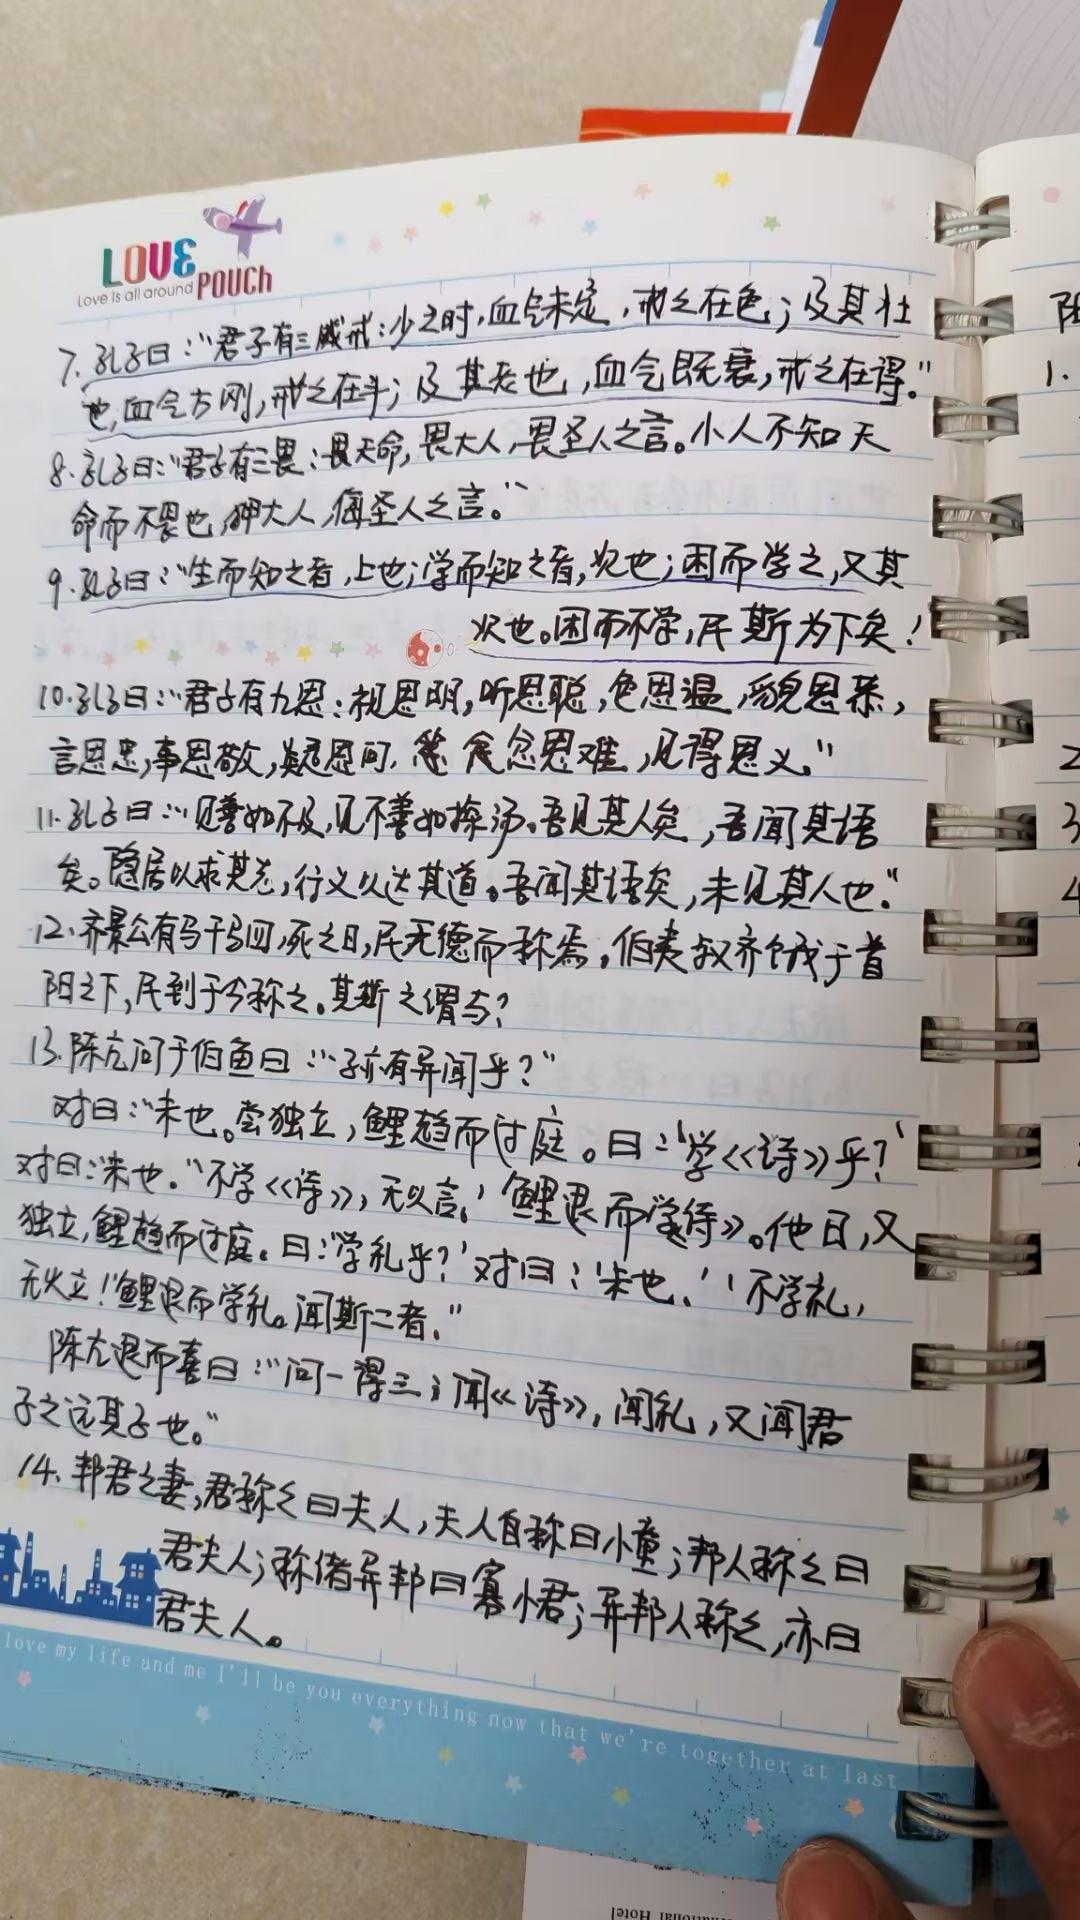 LOVE
Love is all around POUCH
7. 孔子曰：“君子有三戒：少之时，血气未定，戒之在色；及其壮
也，血气方刚，戒之在斗；及其老也，血气既衰，戒之在得。”
8. 孔子曰：“君子有三畏：畏天命，畏大人，畏圣人之言。小人不知天
命而不畏也，狎大人，侮圣人之言。”
9. 孔子曰：“生而知之者，上也；学而知之者，次也；困而学之，又其
次也。困而不学，民斯为下矣！
10. 孔子曰：“君子有九思：视思明，听思聪，色思温，貌思恭，
言思忠，事思敬，疑思问，忿思难，见得思义。”
11. 孔子曰：“见善如不及，见不善如探汤。吾见其人矣，吾闻其语
矣。隐居以求其志，行义以达其道。吾闻其语矣，未见其人也。”
12. 齐景公有马千驷，死之日，民无德而称焉。伯夷叔齐饿于首
阳之下，民到于今称之。其斯之谓与？
13. 陈亢问于伯鱼曰：“子亦有异闻乎？”
对曰：“未也。尝独立，鲤趋而过庭。曰：‘学《诗》乎？’
对曰：‘未也。’‘不学《诗》，无以言。’鲤退而学《诗》。他日，又
独立，鲤趋而过庭。曰：‘学礼乎？’对曰：‘未也。’‘不学礼，
无以立！’鲤退而学礼。闻斯二者。”
陈亢退而喜曰：“问一得三；闻《诗》，闻礼，又闻君
子之远其子也。”
14. 邦君之妻，君称之曰夫人，夫人自称曰小童；邦人称之曰
君夫人；称诸异邦曰寡小君；异邦人称之，亦曰
君夫人。
love my life and me I'll be you everything now that we're together at last
阳
1.
2
3
4
national Hotel